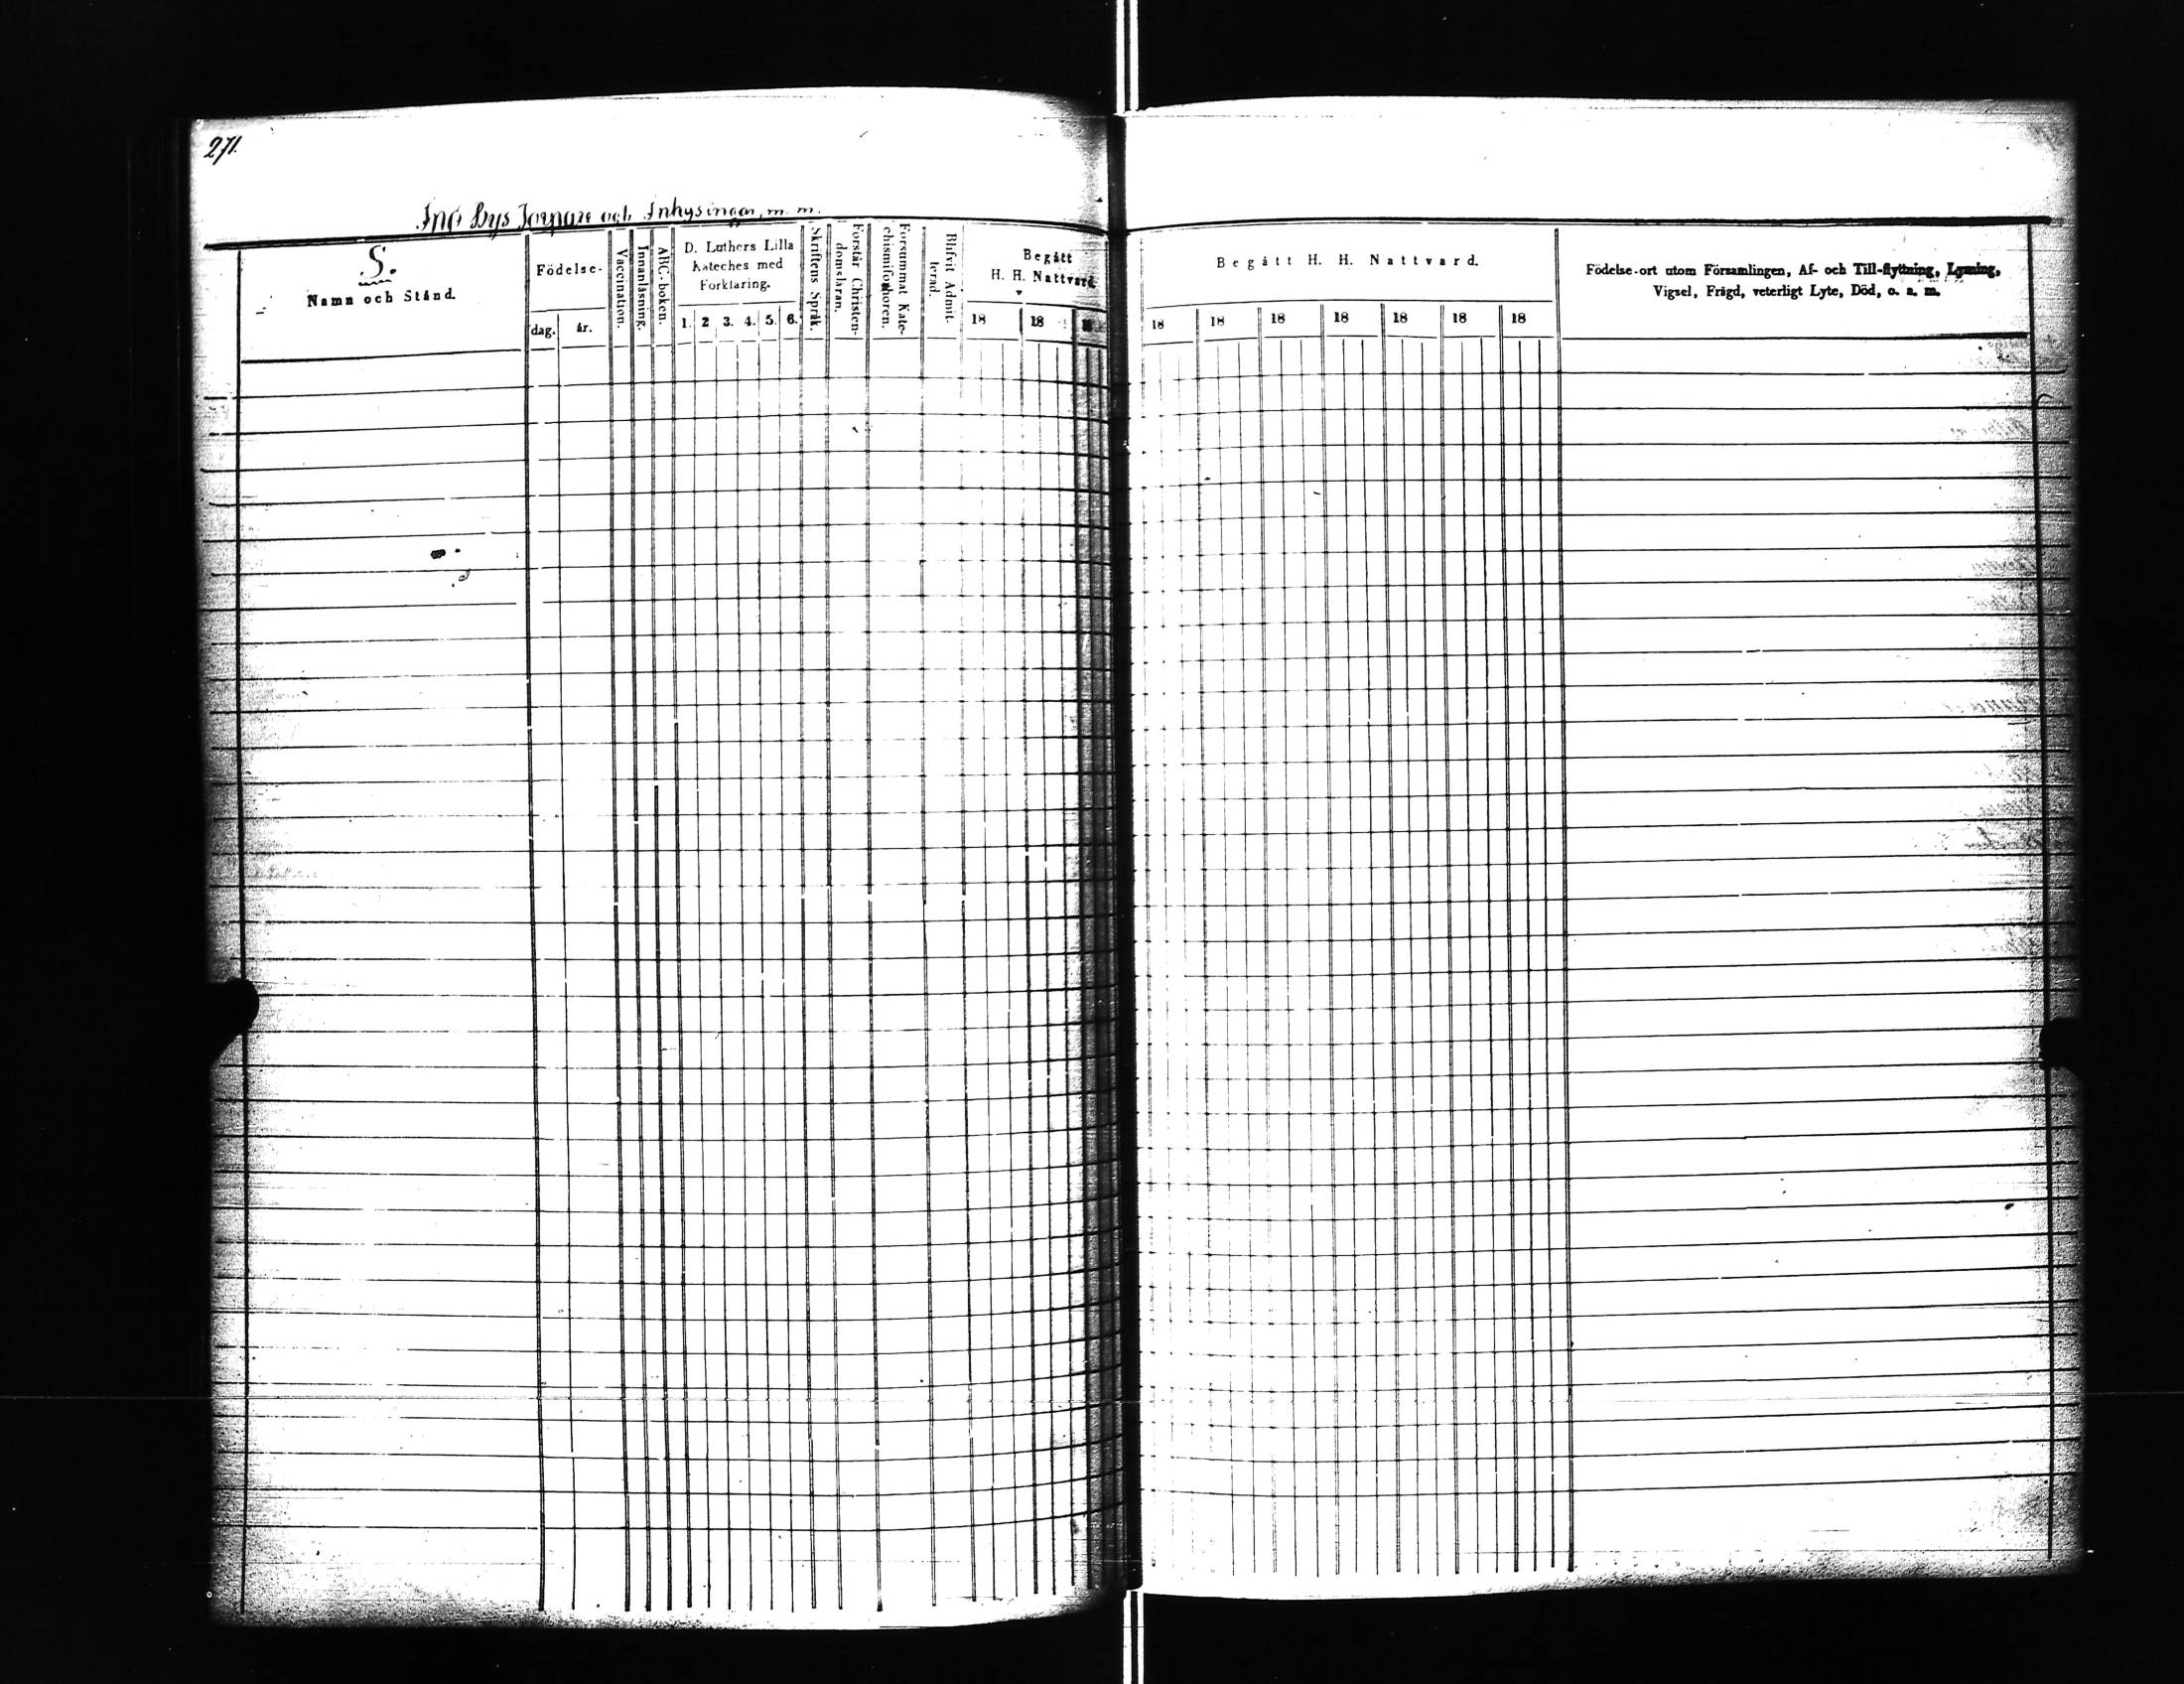 271.
Ingå Bys Torpare och Inhysingar, m. m.
S.
Namn och Stånd.
Födelse-
dag. år.
Vaccination.
Innanläsning.
ABC-boken.
D. Luthers Lilla
Kateches med
Förklaring.
1. 2 3. 4. 5. 6.
Skriftens Språk.
Förstår Christen-
domsläran.
Försummat Kate-
chismiförhören.
Blifvit Admit-
terad.
Begått
H. H. Nattvard
18 18 18
Begått H. H. Nattvard.
18 18 18 18 18 18 18
Födelse-ort utom Församlingen, Af- och Till-flyttning, Lysning,
Vigsel, Frägd, veterligt Lyte, Död, o. s. m.